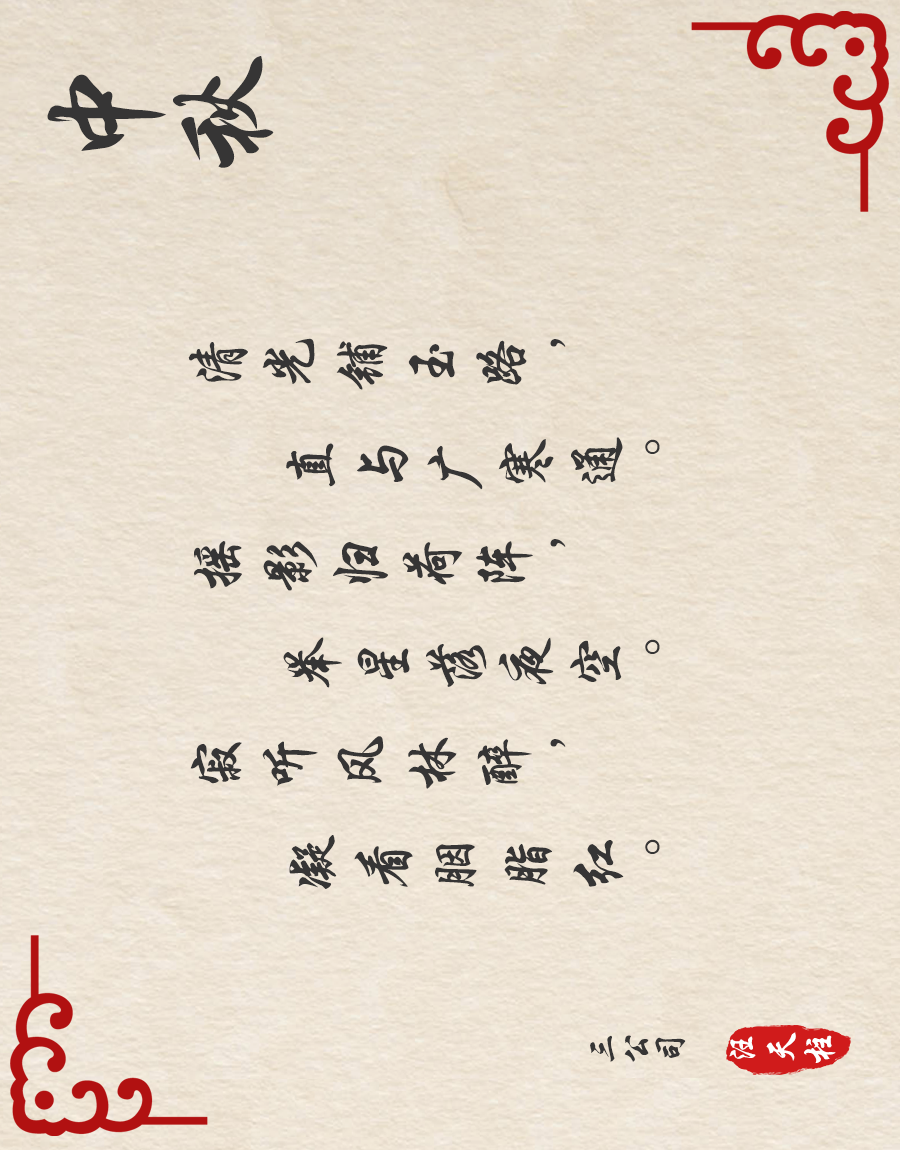 中秋
清光铺玉路，
直与广寒通。
摇影归荷阵，
拳星落夜空。
寂听风林醉，
凝看胭脂红。
三公司
汪天柱